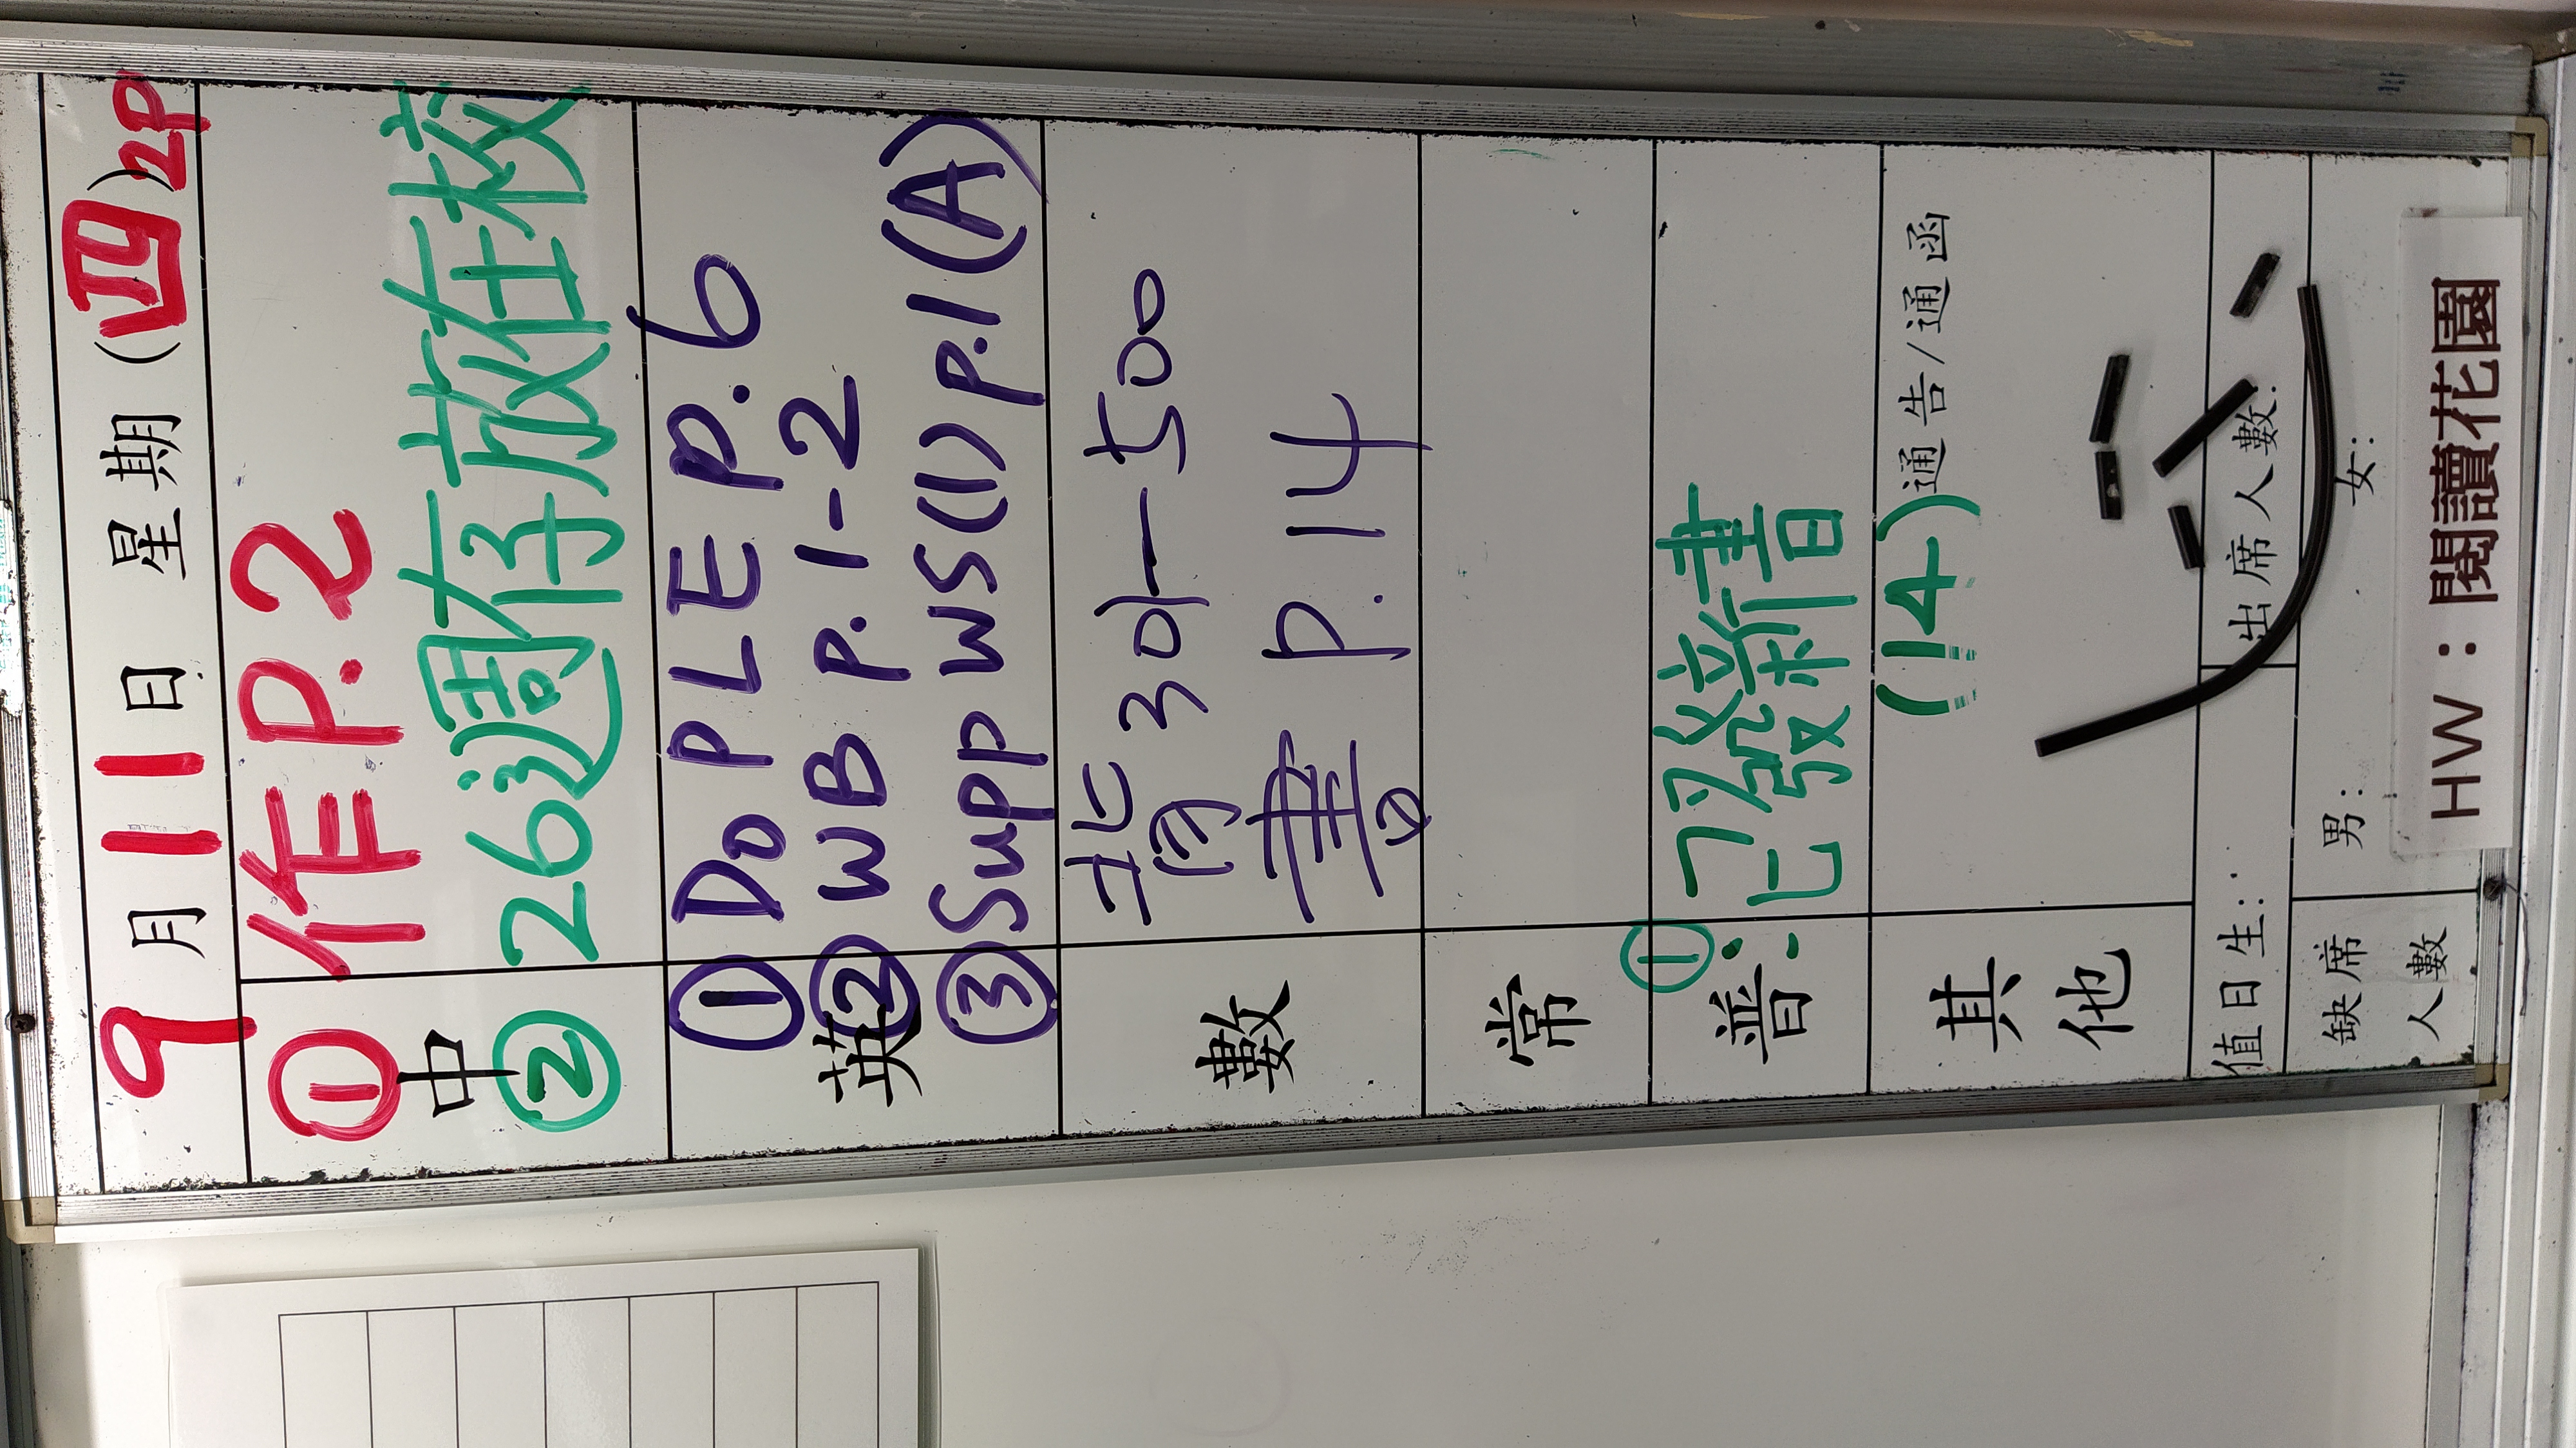 9月11日 星期(四)2P
中 ① 作 P.2
② 26週存放在校
英 ① Do PLE p.6
② WB P.1-2
③ Supp WS(1) p.1(A)
數 背 301—500
書 p.14
常
普: ① 已發新書
其他 (14)通告/通函
值日生: 出席人數:
缺席人數 男: 女:
HW：閱讀花園